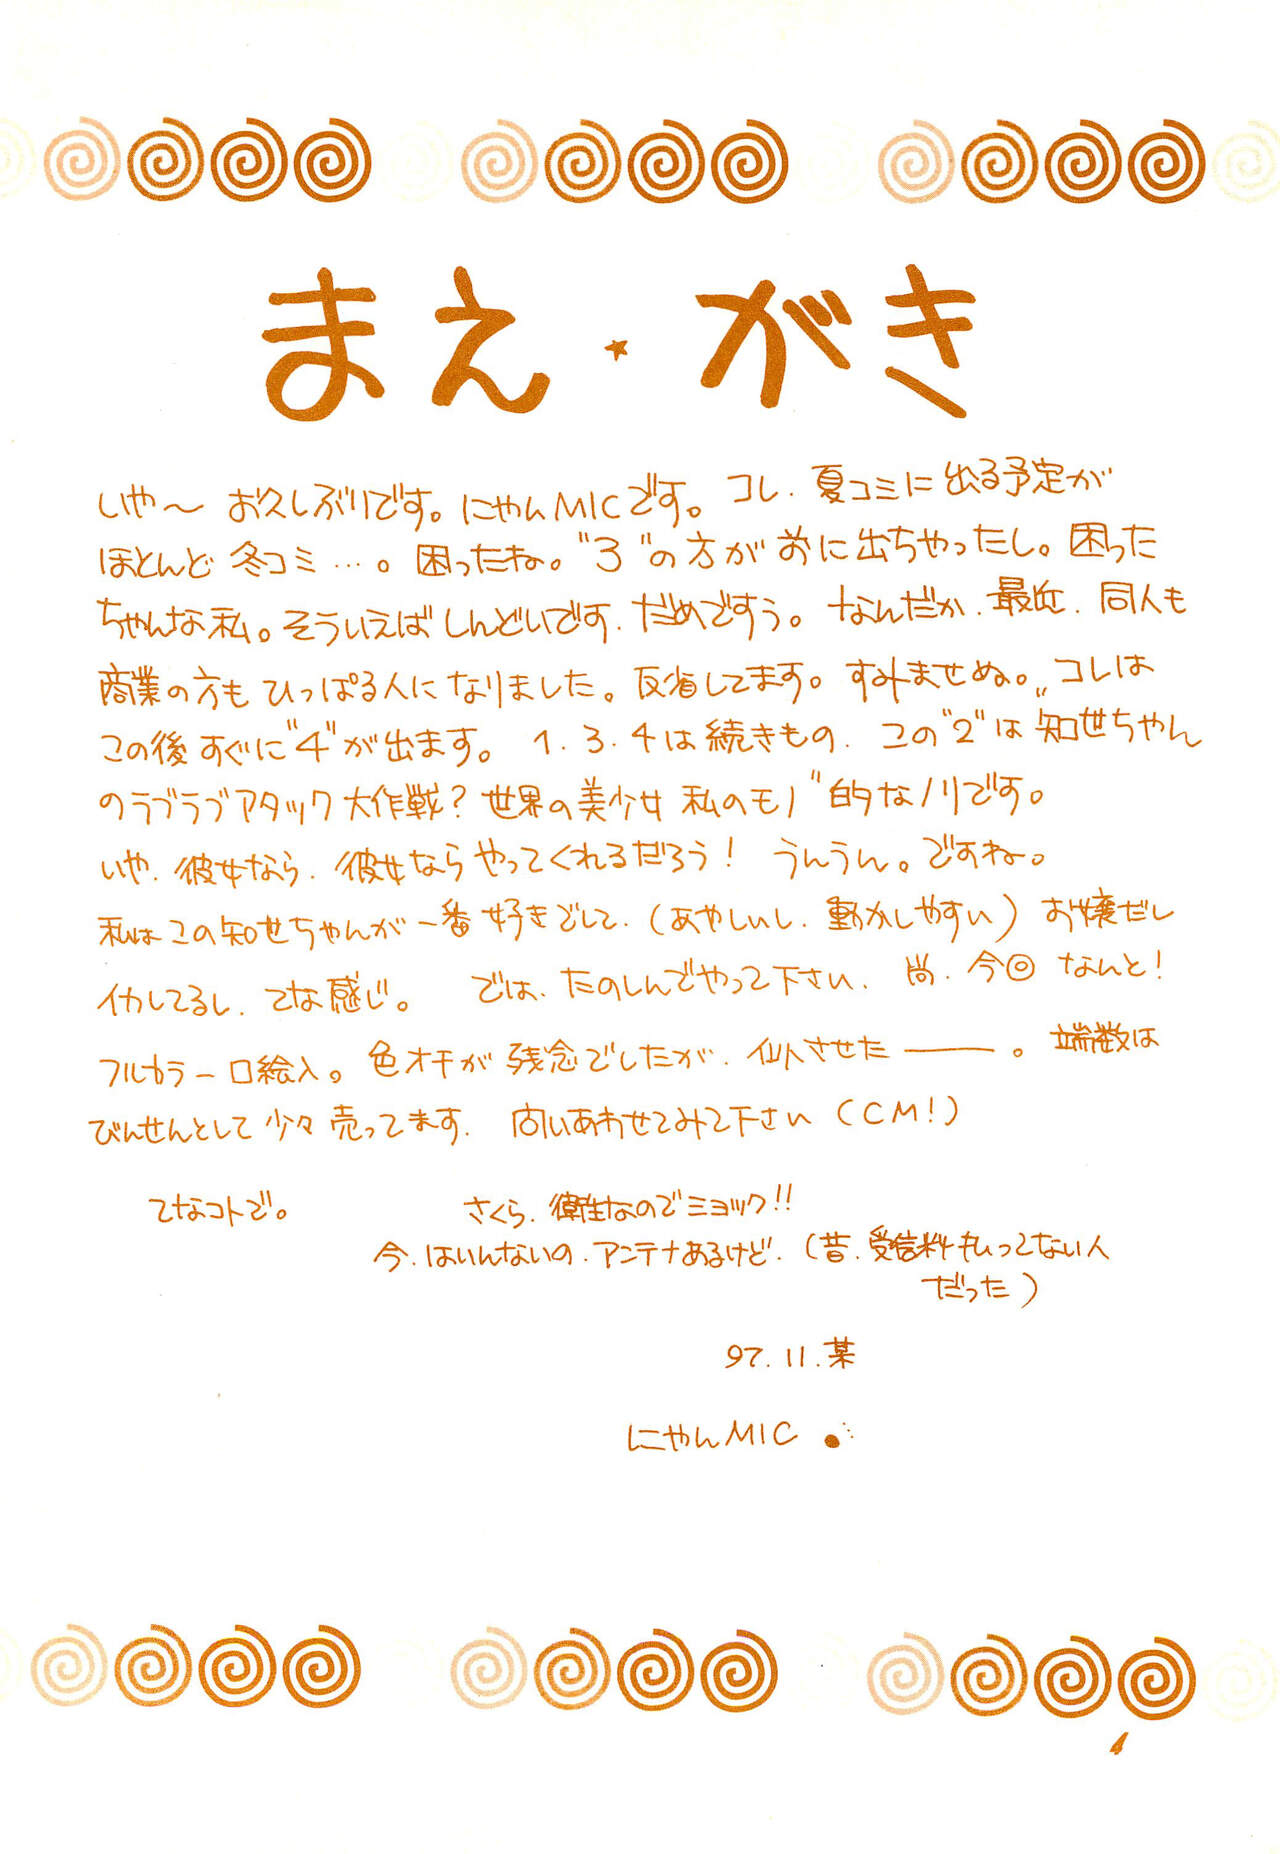 まえ★がき
いや〜お久しぶりです。にゃんMICです。コレ、夏コミに出る予定が
ほとんど冬コミ…。困ったね。"3"の方が前に出ちゃったし。困った
ちゃんな私。そういえばしんどいです、だめですぅ。なんだか、最近、同人も
商業の方もひっぱる人になりました。反省してます。すみませぬ。コレは
この後すぐに"4"が出ます。1.3.4は続きもの、この"2"は"知世ちゃん
のラブラブアタック大作戦?世界の美少女私のモノ"的なノリです。
いや、彼女なら、彼女ならやってくれるだろう!うんうん。ですね。
私はこの知世ちゃんが一番好きでして、(あやしいし、動かしやすい)お嬢だし
イカしてるし、てな感じ。では、たのしんでやって下さい、尚、今回なんと!
フルカラー口絵入。色オチが残念でしたが、仙人させた――。端数は
びんせんとして少々売ってます、問いあわせてみて下さい(CM!)
てなコトで。
さくら、衛星なのでミョック!!
今、はいんないの、アンテナあるけど、(昔、受信料もいってない人
だった)
97.11.某
にゃんMIC
4